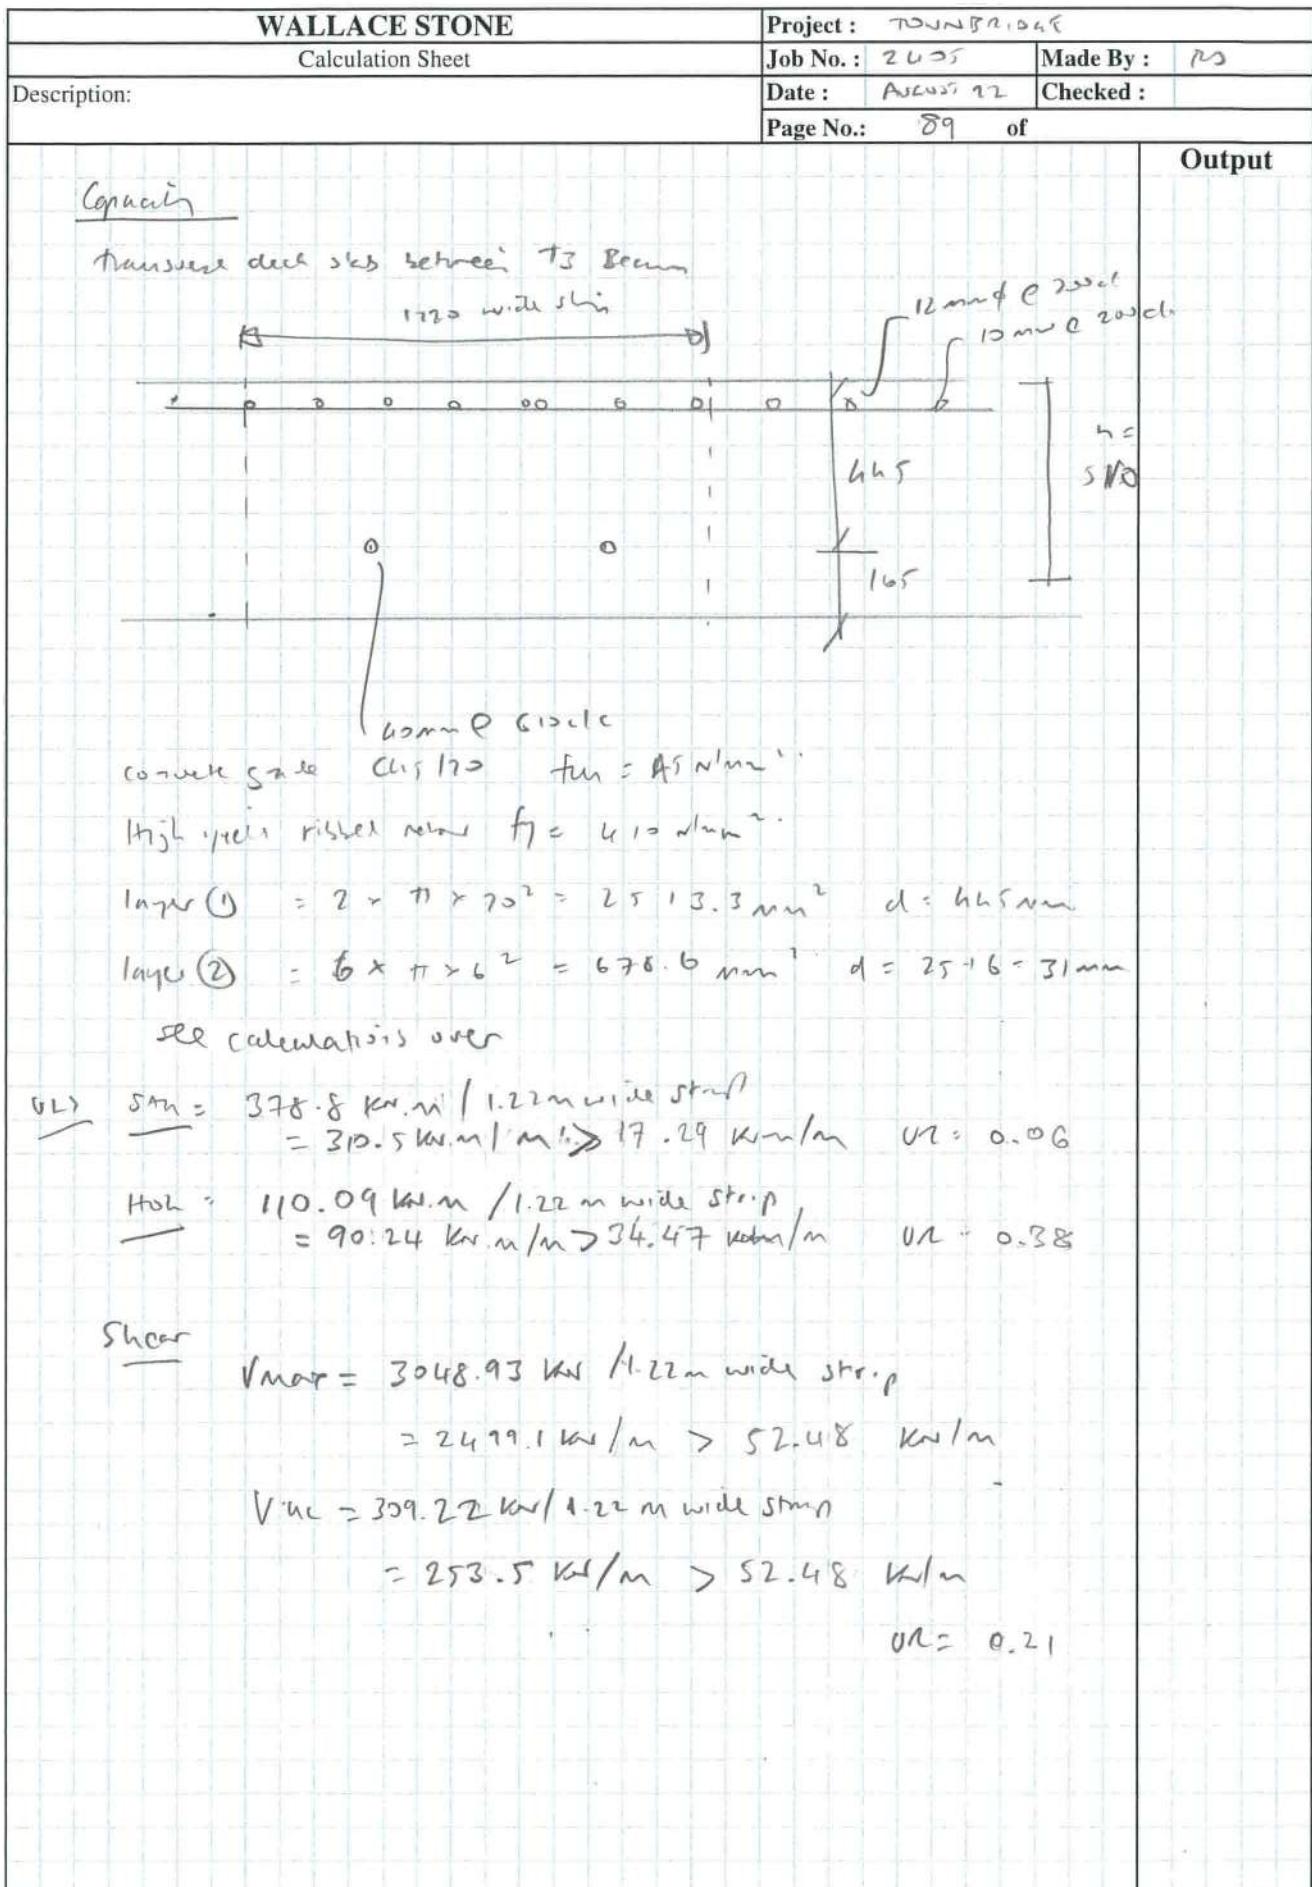 WALLACE STONE
Calculation Sheet
Project : TOWNBRIDGE
Job No. : 2405 Made By : RS
Description:
Date : AUGUST 22 Checked :
Page No.: 89 of
Output
Capacity
transverse deck slab between T3 Beam
1220 wide strip
12 mm ϕ @ 200cl
10 mm @ 200cl.
h =
510
445
165
40mm @ 610 c/c
concrete grade fcu = 45 N/mm²
High yield ribbed rebar fy = 410 N/mm².
layer ① = 2 × π × 20² = 2513.3 mm² d = 445mm
layer ② = 6 × π × 6² = 678.6 mm² d = 25+6 = 31mm
see calculations over
ULS SAG = 378.8 kN.m / 1.22m wide strip
= 310.5 kN.m / m > 17.29 kNm/m UR = 0.06
HOG = 110.09 kN.m / 1.22 m wide strip
= 90.24 kN.m/m > 34.47 kNm/m UR = 0.38
Shear
Vmax = 3048.93 kN / 1.22m wide strip
= 2499.1 kN/m > 52.48 kN/m
Vuc = 309.22 kN / 1.22 m wide strip
= 253.5 kN/m > 52.48 kN/m
UR = 0.21